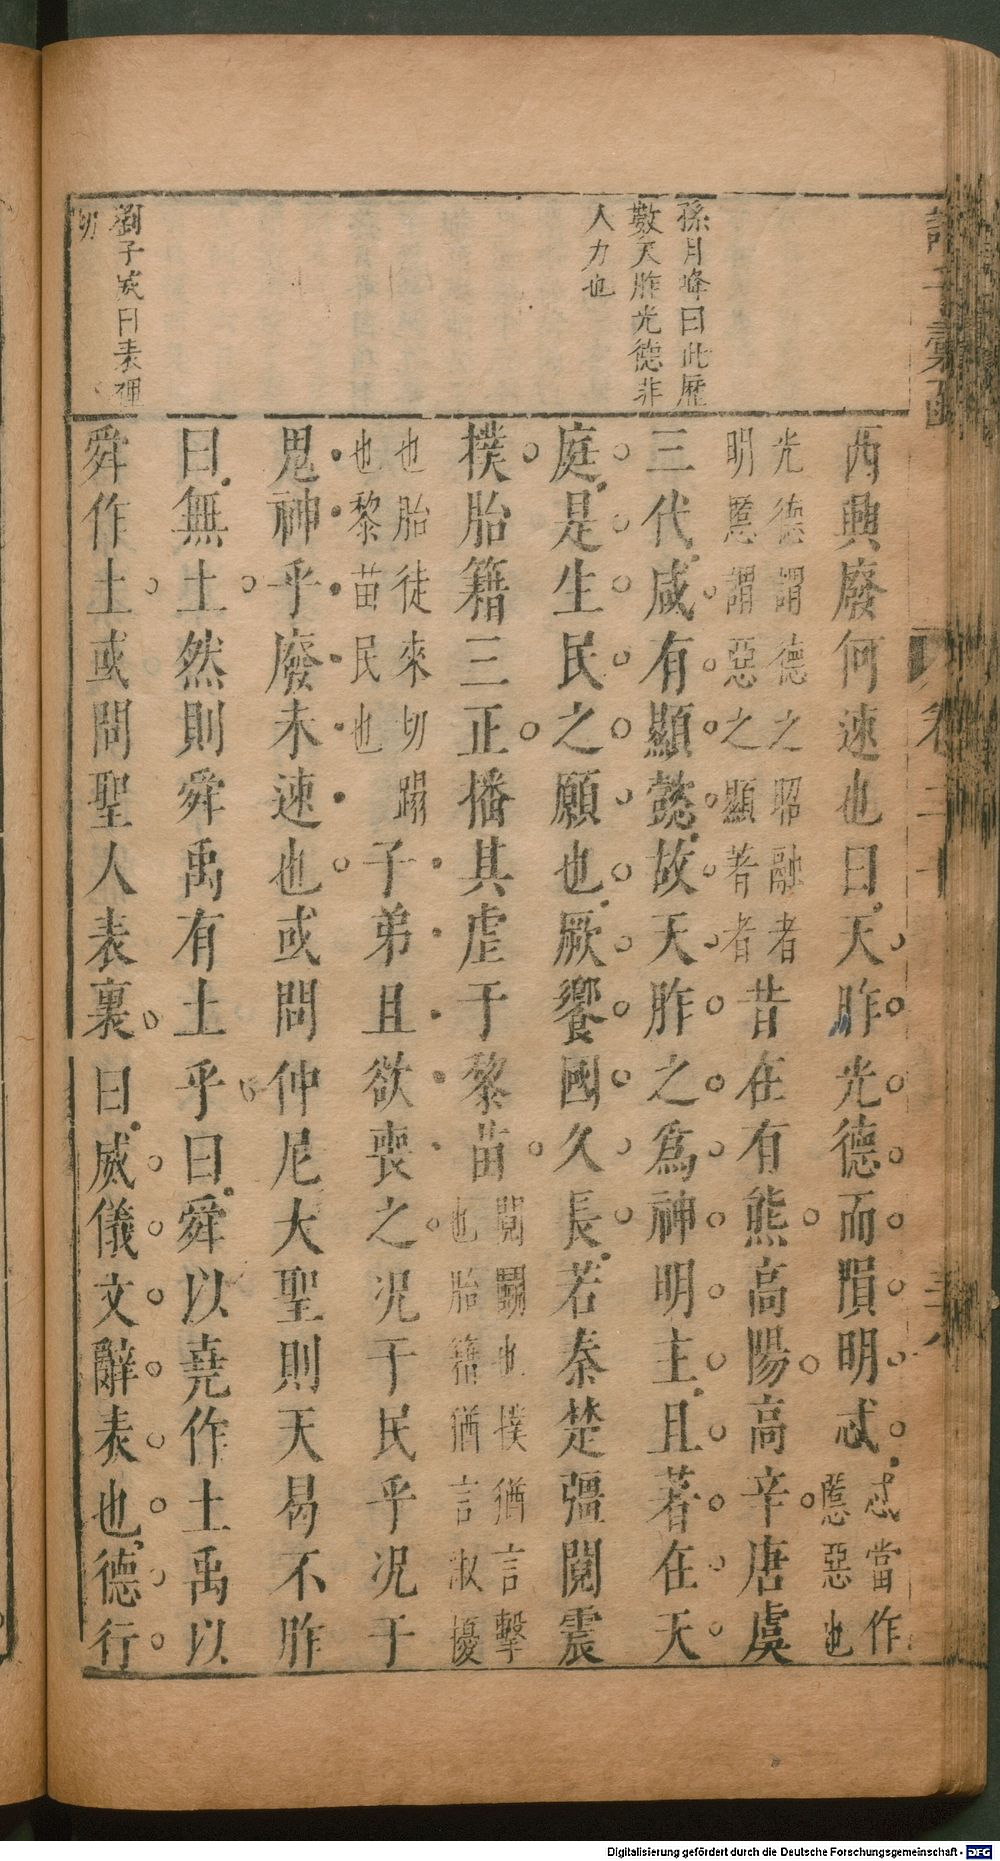 孫月峰曰此歷
數天胙光德非
人力也
劉子威曰表裡
切
西興廢何速也曰天胙光德而隕明忒忒當作
慝惡也
光德謂德之昭融者
明慝謂惡之顯著者昔在有熊高陽高辛唐虞
三代咸有顯懿故天胙之爲神明主且著在天
庭是生民之願也厥饗國久長若秦楚彊鬩震
撲胎籍三正播其虐于黎苗鬩鬭也撲猶言擊
也胎籍猶言㴑擾
也胎徒來切蹋
也黎苗民也子弟且欲喪之況于民乎況于
鬼神乎廢未速也或問仲尼大聖則天曷不胙
曰無土然則舜禹有土乎曰舜以堯作土禹以
舜作土或問聖人表裏曰威儀文辭表也德行
卷二十
Digitalisierung gefördert durch die Deutsche Forschungsgemeinschaft - DFG